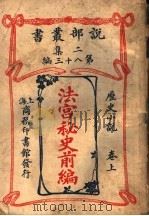 説部叢書
二集
第八十三編
歷史小說
卷上
法宮秘史前編
上海商務印書館發行